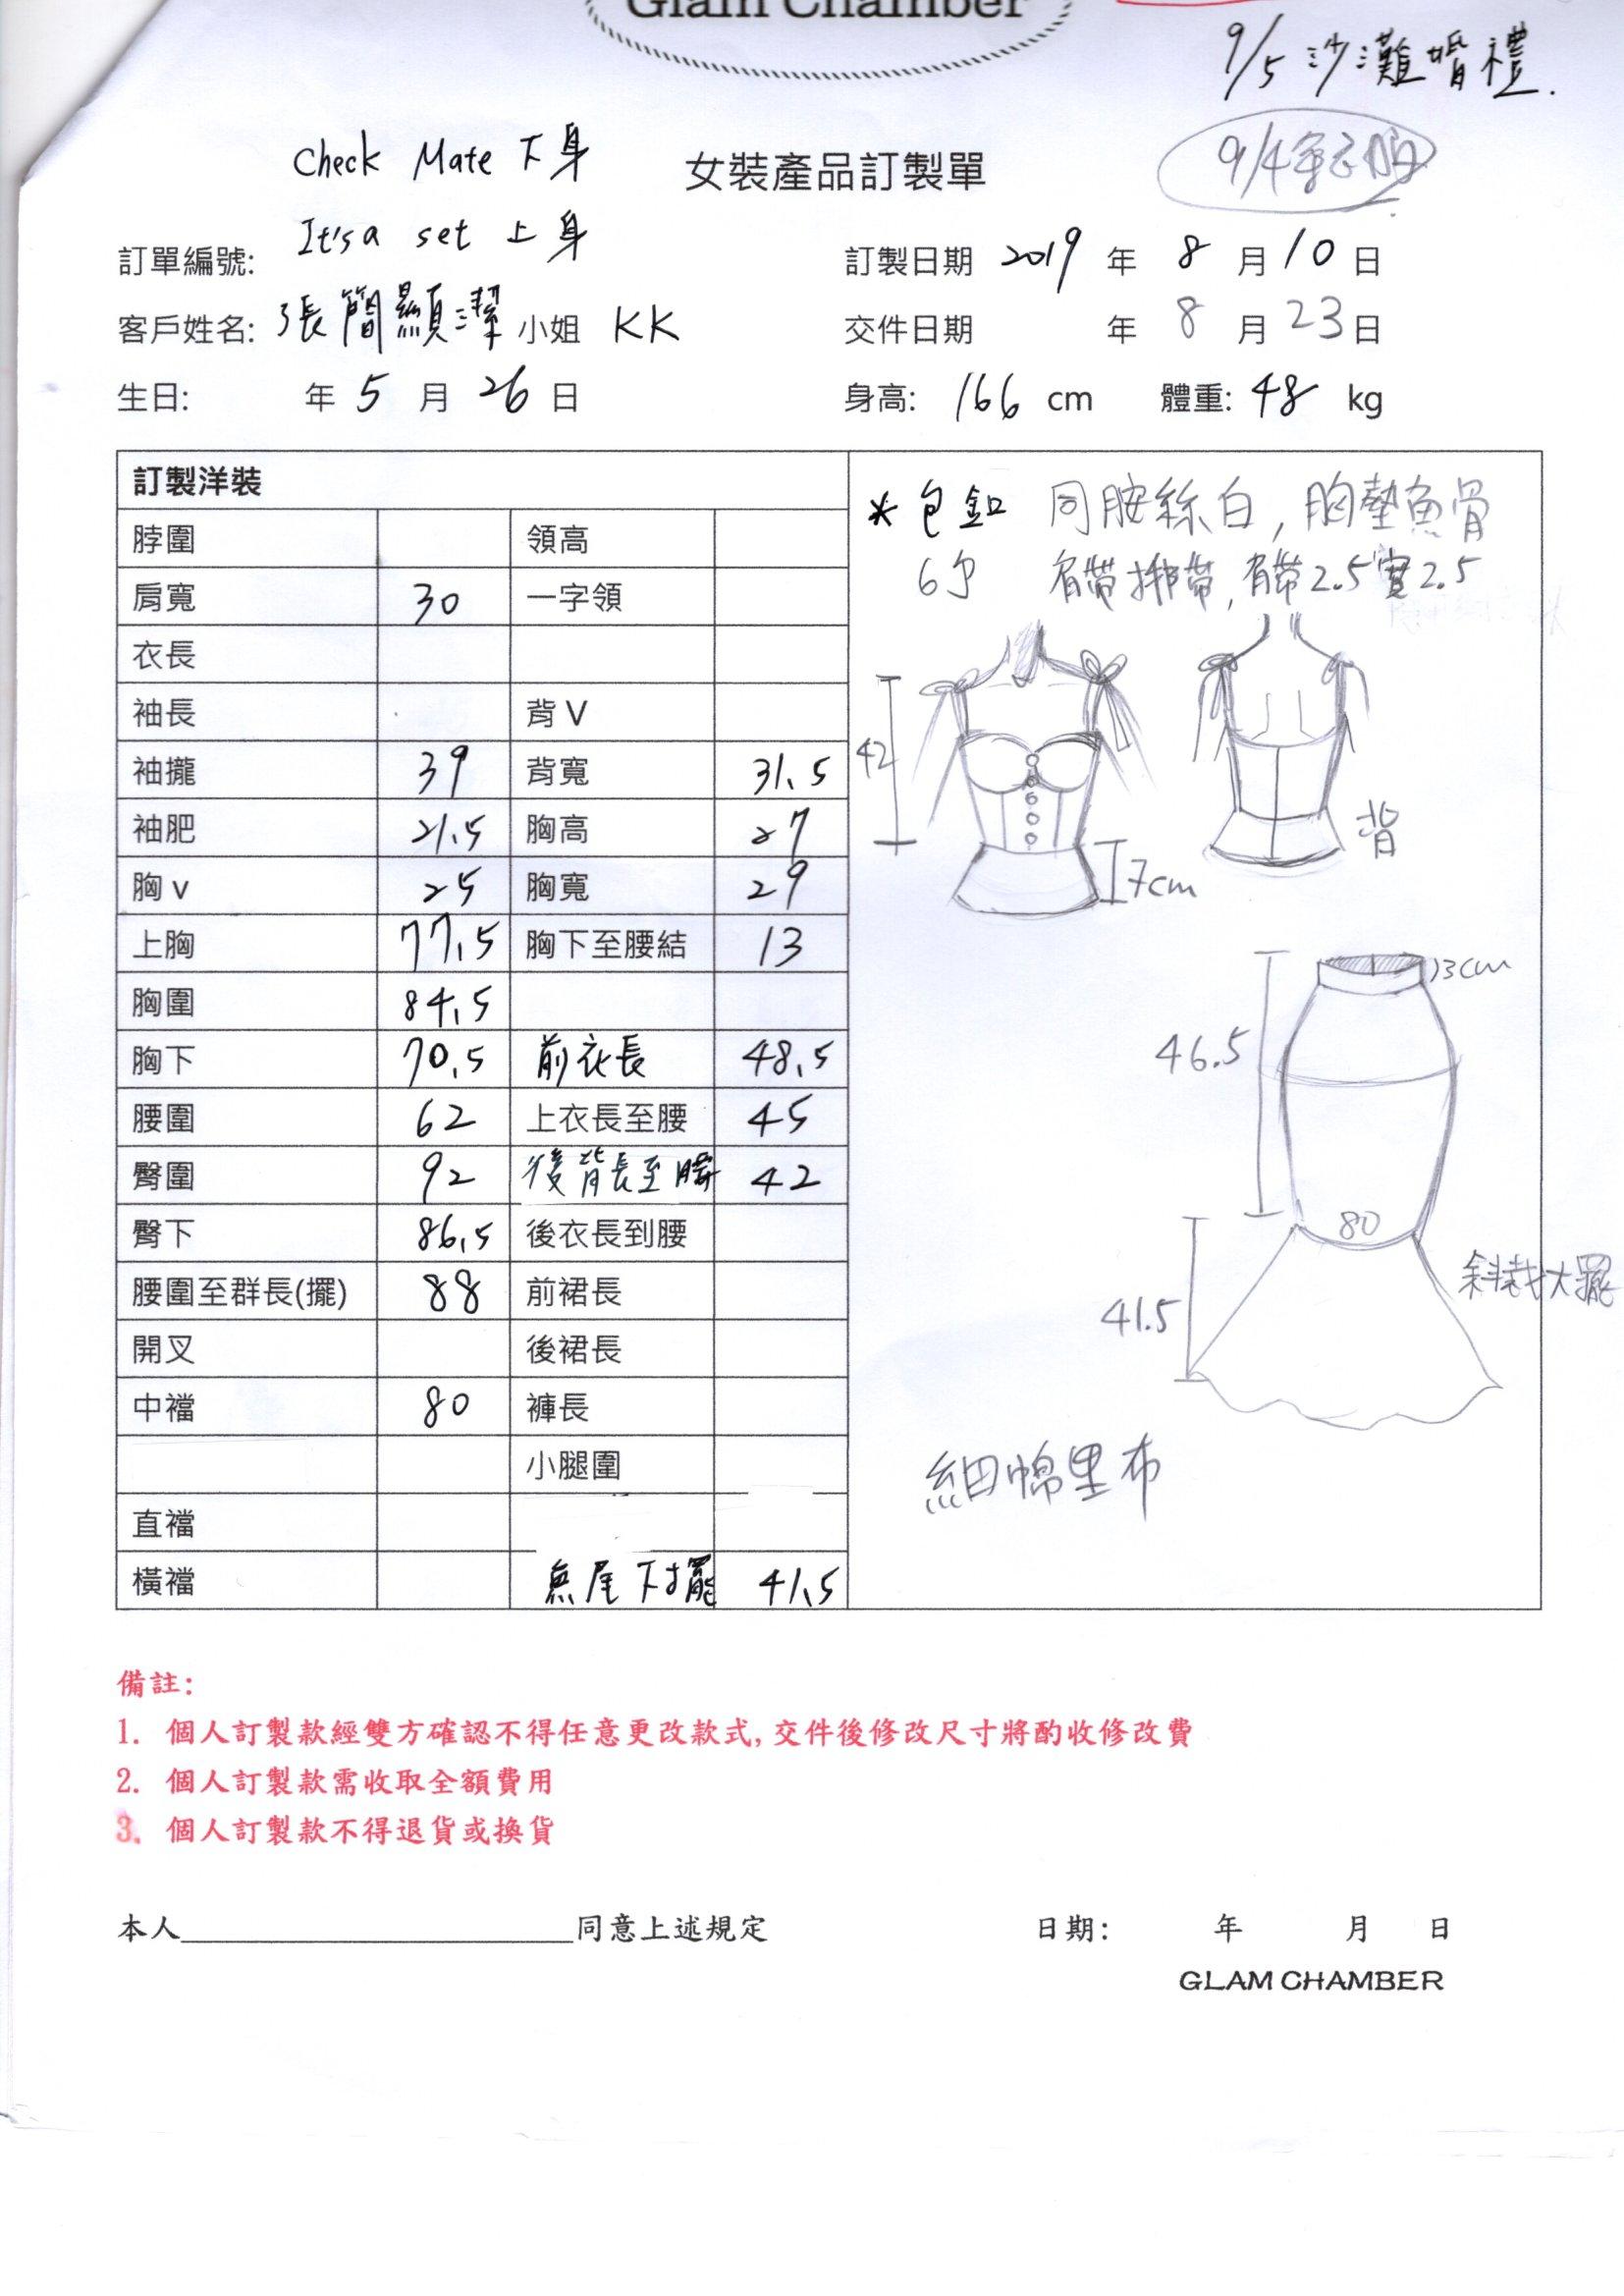 Glam Chamber
9/5 沙灘婚禮.
Check Mate 下身
女裝產品訂製單
9/4
It's a set 上身
訂單編號:
訂製日期 2019 年 8 月 10 日
客戶姓名: 張簡顯潔 小姐 KK
交件日期 年 8 月 23 日
生日: 年 5 月 26 日
身高: 166 cm 體重: 48 kg
訂製洋裝
脖圍 領高
肩寬 30 一字領
衣長
袖長 背 V
袖攏 39 背寬 31.5
袖肥 21.5 胸高 27
胸 v 25 胸寬 29
上胸 77.5 胸下至腰結 13
胸圍 84.5
胸下 70.5 前衣長 48.5
腰圍 62 上衣長至腰 45
臀圍 92 後背長至腰 42
臀下 86.5 後衣長到腰
腰圍至群長(擺) 88 前裙長
開叉 後裙長
中襠 80 褲長
小腿圍
直襠
橫襠 魚尾下擺 41.5
* 包釦 同胺絲白, 胸墊魚骨
6 肩帶綁帶, 肩帶2.5 實2.5
42
背
7cm
3cm
46.5
80
斜裁大擺
41.5
細棉里布
備註:
1. 個人訂製款經雙方確認不得任意更改款式, 交件後修改尺寸將酌收修改費
2. 個人訂製款需收取全額費用
3. 個人訂製款不得退貨或換貨
本人________________________同意上述規定
日期: 年 月 日
GLAM CHAMBER